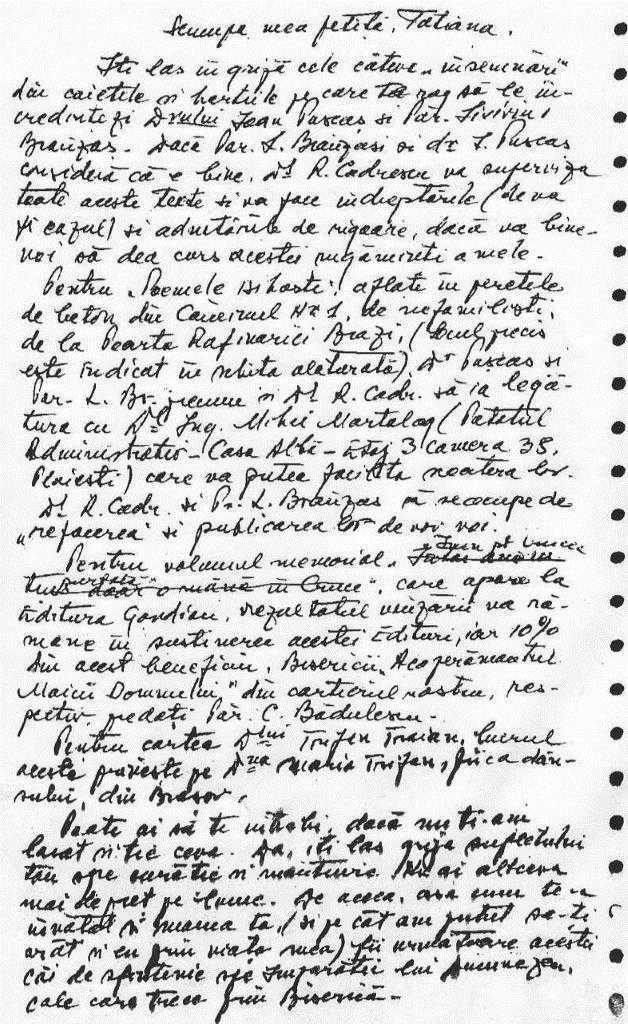 Scumpa mea fetiță, Tatiana.
Iți las în grijă cele câteva „însemnări”
din caietele și hârtiile pe care te rog să le în-
credințezi Dnului Ioan Pușcaș și Păr. Liviriu
Brânzaș. Dacă Păr. L. Brânzași și dl I. Pușcaș
consideră că e bine, Dl R. Cadrescu va superviza
toate aceste texte și va face îndreptările (de va
fi cazul) și adnotările de rigoare, dacă va bine-
voi să dea curs acestei rugăminți a mele.
Pentru „Poemele , aflate în peretele
de beton din Căminul Nr 1, de nefamiliști,
de la Poarta Rafinăriei Brazi, (locul precis
este indicat în schița alăturată) Dl Pușcaș și
Păr. L. Br. precum și Dl R. Cadr. să ia legă-
tura cu Dl Ing. Mihei Martalog (Palatul
Administrativ - Casa Albă - Etaj 3 camera 38,
Ploiești) care va putea facilita scoaterea lor.
Dl R. Cadr. și Pr. L. Brânzaș să se ocupe de
„refacerea și publicarea lor de vor voi.
Pentru volumul memorial „
o mână în Cruce”, care apare la
Editura Gordian, rezultatul vânzării va ră-
mane în susținerea acestei Edituri, iar 10%
din acest beneficiu, Bisericii „Acoperământul
Maicii Domnului,” din cartierul nostru, res-
pectiv, predați Păr. C. Bădulescu.
Pentru cartea Dlui Trifan Traian, lucrul
acesta privește pe Dna Maria Trifan, fiica dân-
sului, din Brașov.
Poate ai să te întrebi, dacă nu ți-am
lăsat și ție ceva. Da, iți las grija sufletului
tău spre curăție și mântuire. Nu ai altceva
mai de preț pe lume. De aceea, așa cum te-a
învățat și mama ta, (și pe cât am putut să-ți
arăt și eu prin viața mea) fii următoare acestei
căi de sfințenie spre Împărăția lui Dumnezeu,
cale care trece prin Biserică -